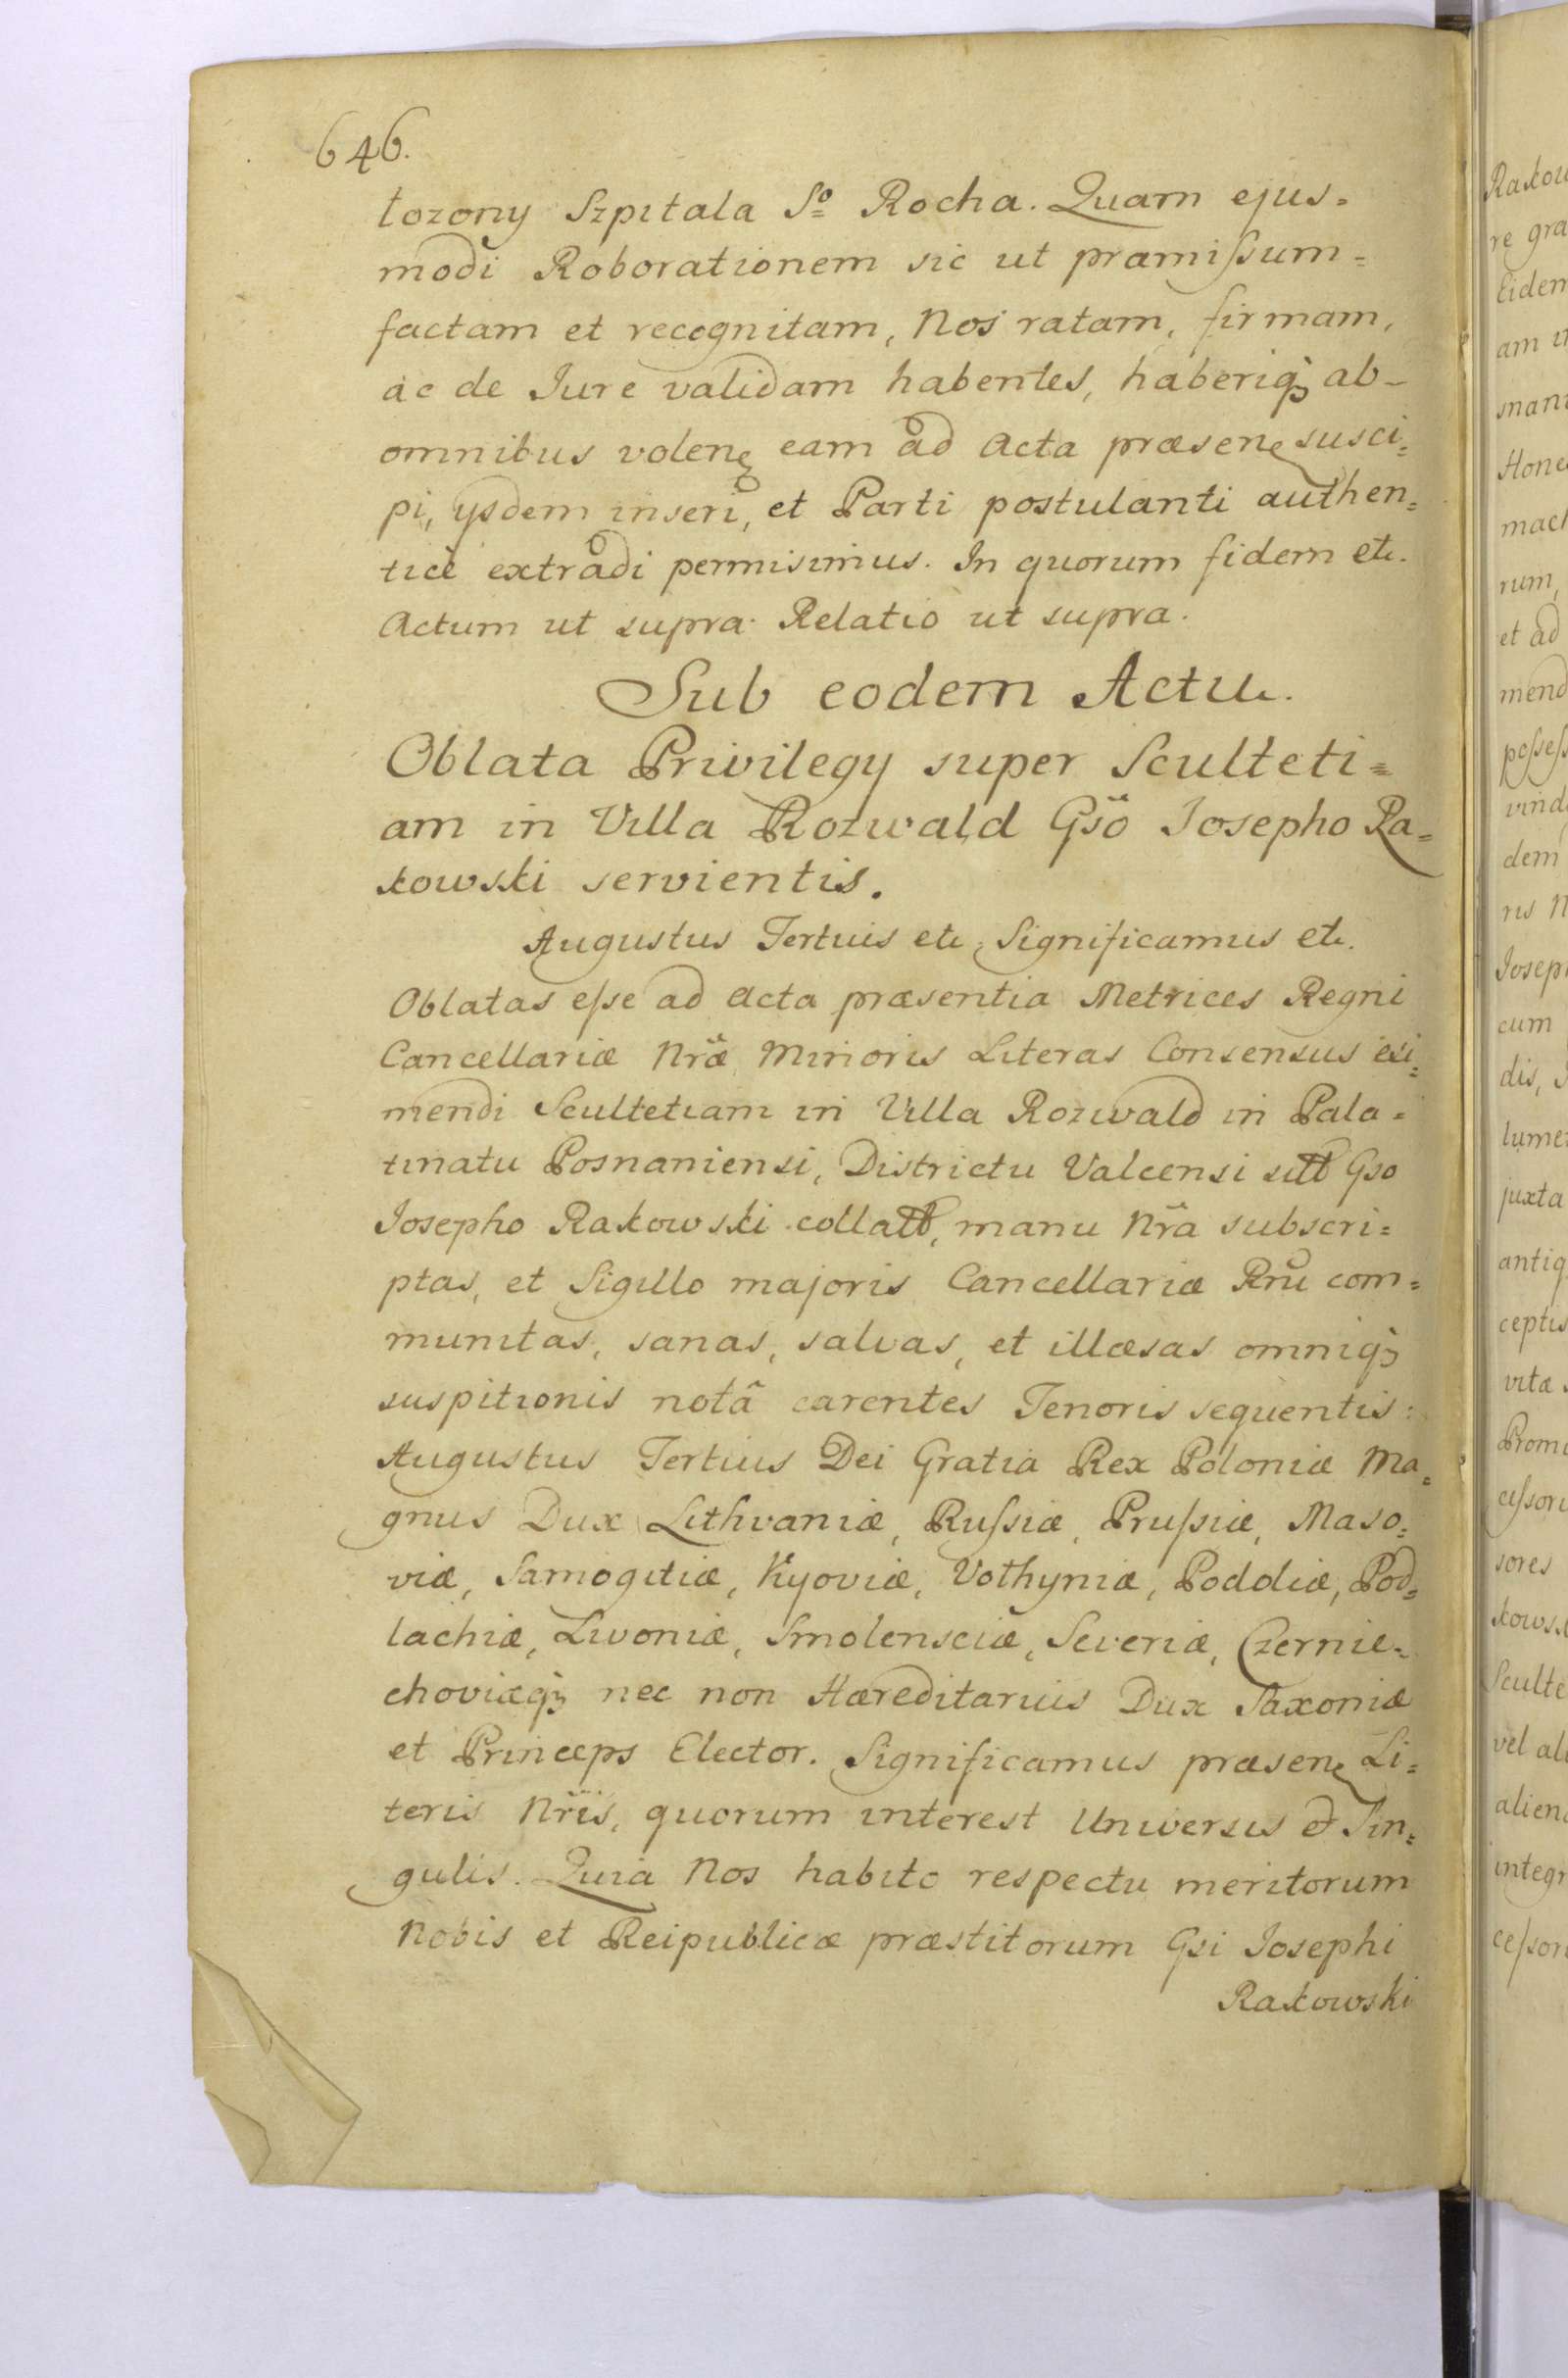 646.
tozony Szpitala Sº Rocha. Quam ejus=
modi Roborationem sic ut præmissum=
factam et recognitam, Nos ratam, firmam,
ac de Jure validam habentes, haberiq₃ ab-
omnibus volenę eam ad Acta præsenę susci=
pi, ysdem inseri, et Parti postulanti authen=
ticè extradi permisimus. In quorum fidem etc.
Actum ut supra. Relatio ut supra.
Sub eodem Actu.
Oblata Privilegy super Sculteti=
am in Villa Rozwald Gsõ Josepho Ra=
kowski servientis.
Augustus Tertius etc. Significamus etc.
Oblatas esse ad Acta præsentia Metrices Regni
Cancellariæ Nræ Minoris Literas Consensus exi=
mendi Scultetiam in Villa Rozwald in Pala=
tinatu Posnaniensi, Districtu Valcensi sitt Gso
Josepho Rakowski collatt, manu Nrã subscri=
ptas, et Sigillo majoris Cancellariæ Rni com=
munitas, sanas, salvas, et illæsas omniq₃
suspitionis notã carentes Tenoris sequentis:
Augustus Tertius Dei Gratia Rex Poloniæ Ma=
gnus Dux Lithvaniæ, Russiæ, Prussiæ, Maso=
viæ, Samogitiæ, Kyoviæ, Volhyniæ, Podoliæ, Pod=
lachiæ, Livoniæ, Smolensciæ, Severiæ, Czernie=
choviæq₃ nec non Hæreditarius Dux Saxoniæ
et Princeps Elector. Significamus præsenę Li=
teris Nrïs, quorum interest Universis et Sin=
gulis. Quia Nos habito respectu meritorum
Nobis et Reipublicæ præstitorum Gsi Josephi
Rakowski